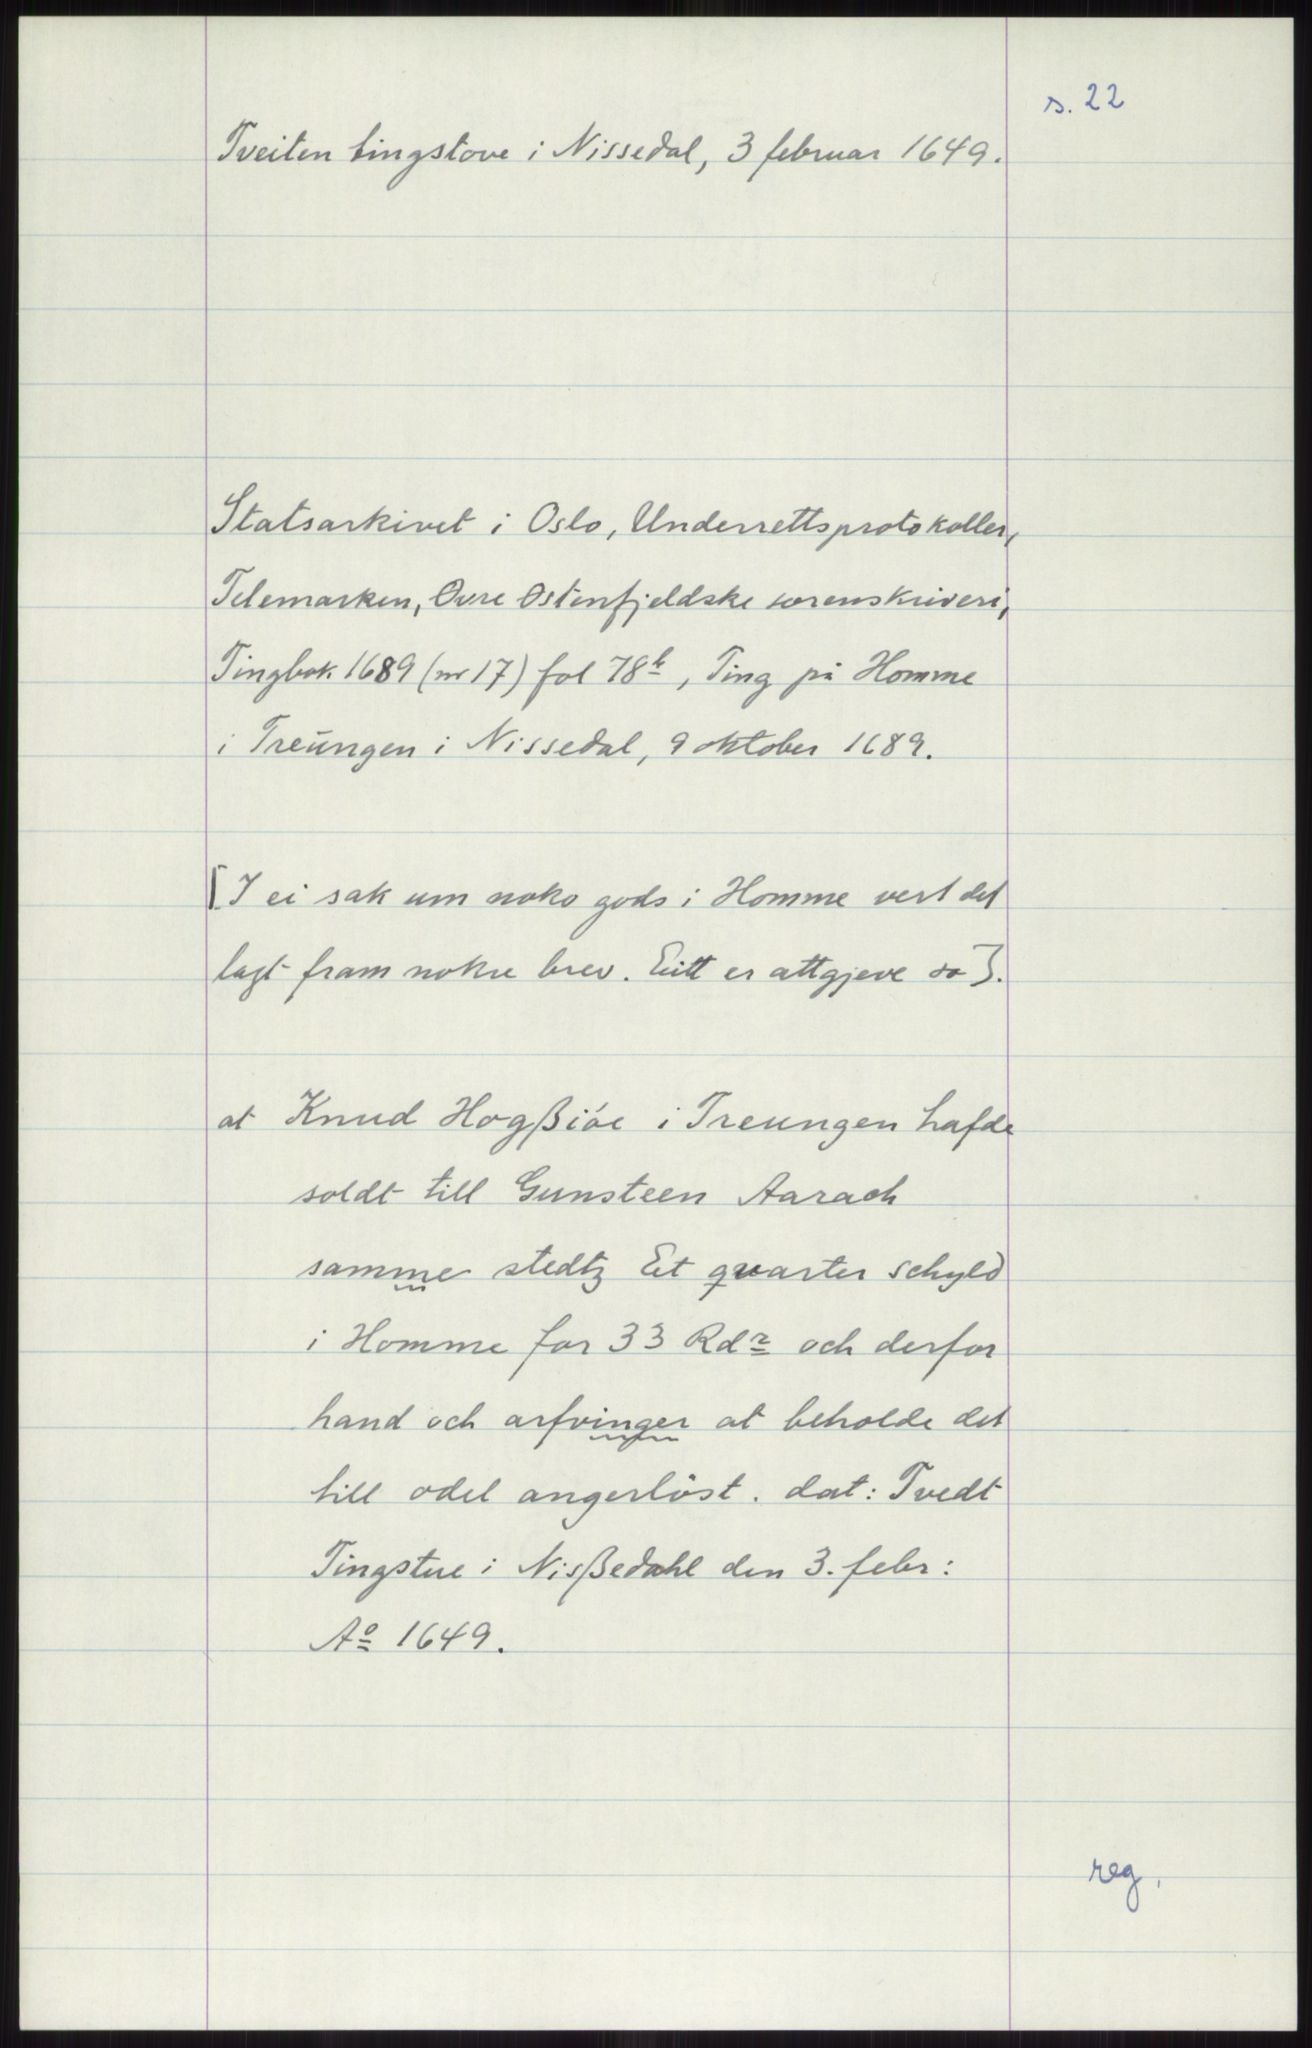 s. 22
Tveiten tingstove i Nissedal, 3 februar 1649.
Statsarkivet i Oslo, Underrettsprotokoller,
Telemarken, Øvre Østenfjeldske sorenskriveri,
Tingbok 1689 (nr 17) fol 78b, Ting på Homme
i Treungen i Nissedal, 9 oktober 1689.
[I ei sak um noko gods i Homme vert det
lagt fram nokre brev. Eitt er attgjeve so].
at Knud Hogßiöe i Treungen hafde
soldt till Gunsteen Aarach
samme stedtz Eet quarter schyld
i Homme for 33 Rdr och derfor
hand och arfvinger at beholde det
till odel angerlöst. dat: Tvedt
Tingstue i Nisßedahl den 3. febr:
Ao 1649.
reg.